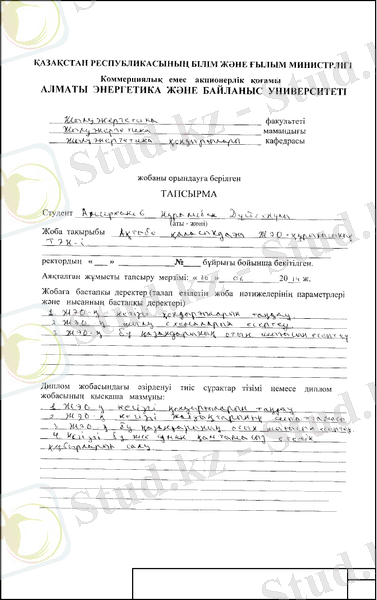 ҚАЗАҚСТАН РЕСПУБЛИКАСЫНЫҢ БІЛІМ ЖӘНЕ ҒЫЛЫМ МИНИСТРЛІГІ
Коммерциялық емес акционерлік қоғамы
АЛМАТЫ ЭНЕРГЕТИКА ЖӘНЕ БАЙЛАНЫС УНИВЕРСИТЕТІ
Жылуэнергетика факультеті
Жылуэнергетика мамандығы
Жылуэнергетика қондырғылары кафедрасы
жобаны орындауға берілген
ТАПСЫРМА
Студент
(аты - жөні)
Жоба тақырыбы Ақтөбе қаласындағы ЖЭО
ТЭН-і
ректордың « » № бұйрығы бойынша бекітілген.
Аяқталған жұмысты тапсыру мерзімі: « » 06 2014 ж.
Жобаға бастапқы деректер (талап етілетін жоба нәтижелерінің параметрлері
және нысанның бастапқы деректері)
1 ЖЭО-ң негізгі қондырғыларын таңдау
2 ЖЭО-ң жылу схемаларын есептеу
3 ЖЭО-ң бу қазандарының отын шығысын есептеу
Диплом жобасындағы әзірленуі тиіс сұрақтар тізімі немесе диплом
жобасының қысқаша мазмұны:
1 ЖЭО-ң негізгі қондырғыларын таңдау
2 ЖЭО-ң негізгі
3 ЖЭО-ң бу қазандарының отын шығысын есептеу
4 Негізгі бу
құбырларын салу
Stud.kz - Stud.kz